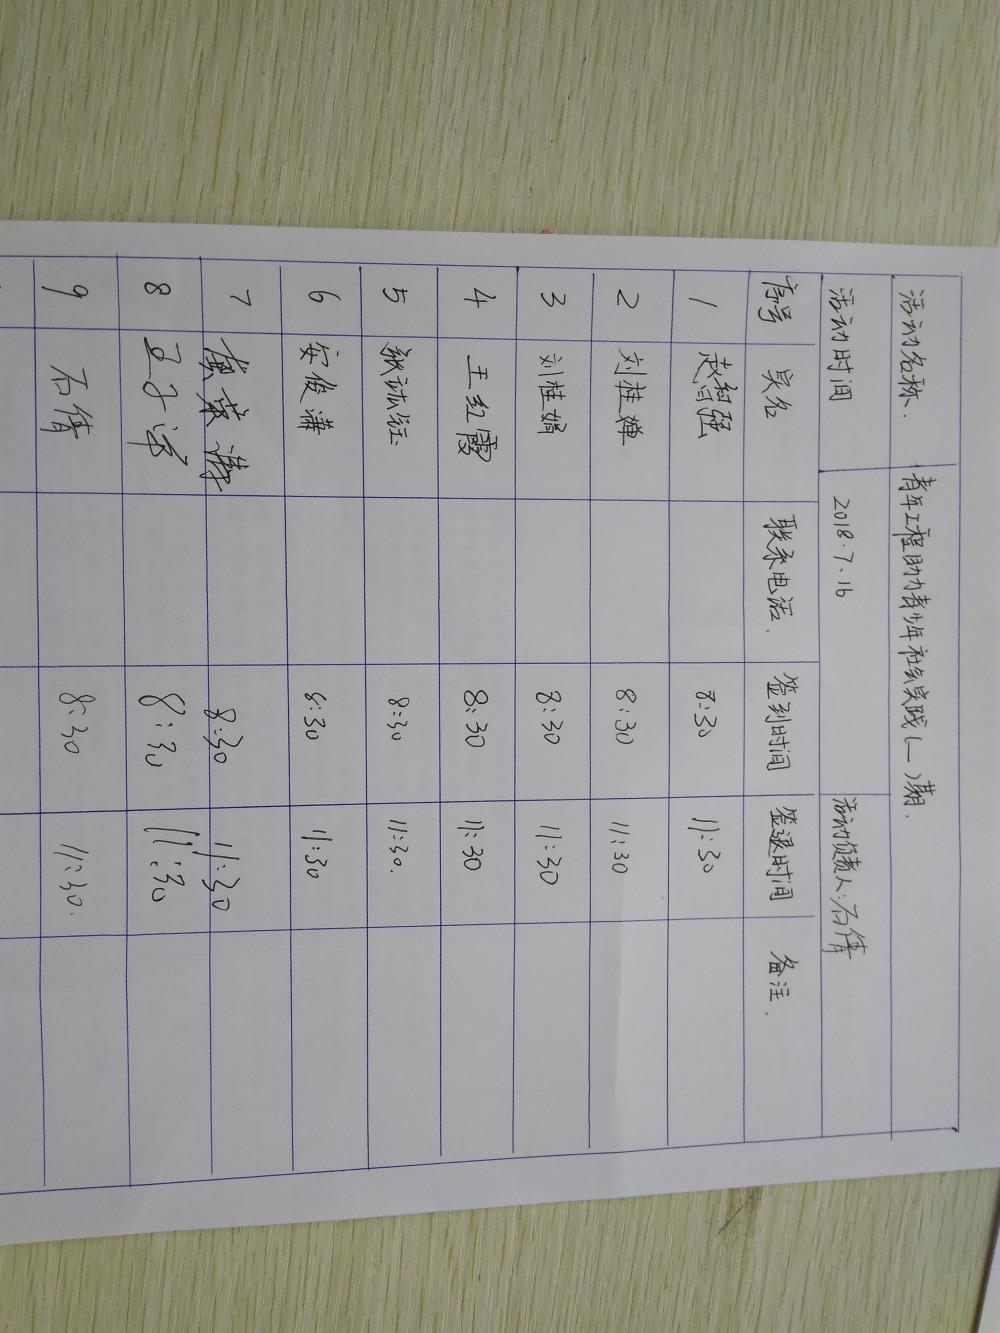 活动名称、 青年工程助力青少年社会实践(一)期.
活动时间 2018.7.16 活动负责人:石倩
序号 姓名 联系电话. 签到时间 签退时间 备注.
1 赵智强 8:30 11:30
2 刘桂婵 8:30 11:30
3 刘桂娟 8:30 11:30
4 王红霞 8:30 11:30
5 张 8:30 11:30.
6 安俊潇 8:30 11:30
7 8:30 11:30
8 王子 8:30 11:30
9 石倩 8:30 11:30.